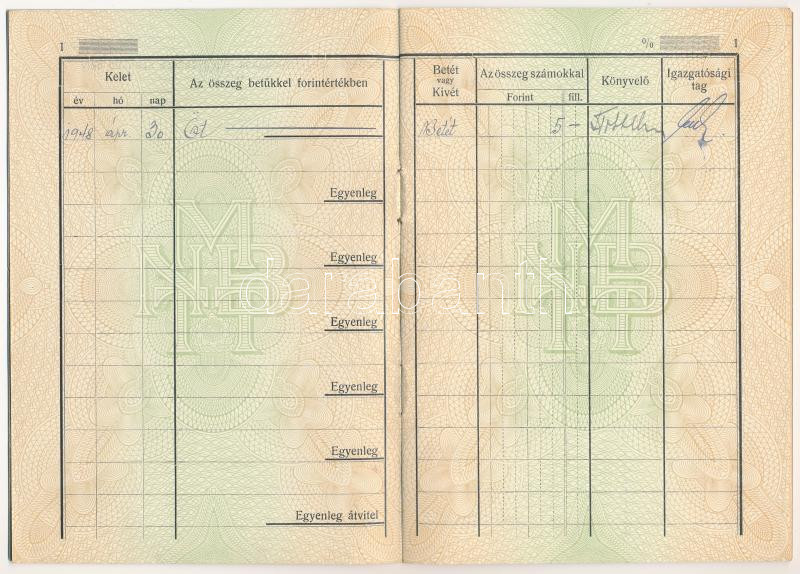 1 % 1
Kelet Az összeg betűkkel forintértékben Betét vagy Kivét Az összeg számokkal Könyvelő Igazgatósági tag
év hó nap Forint fill.
1948 ápr. 30 Öt Betét 5 –
Egyenleg
Egyenleg
darabanth
Egyenleg
Egyenleg
Egyenleg
Egyenleg átvitel